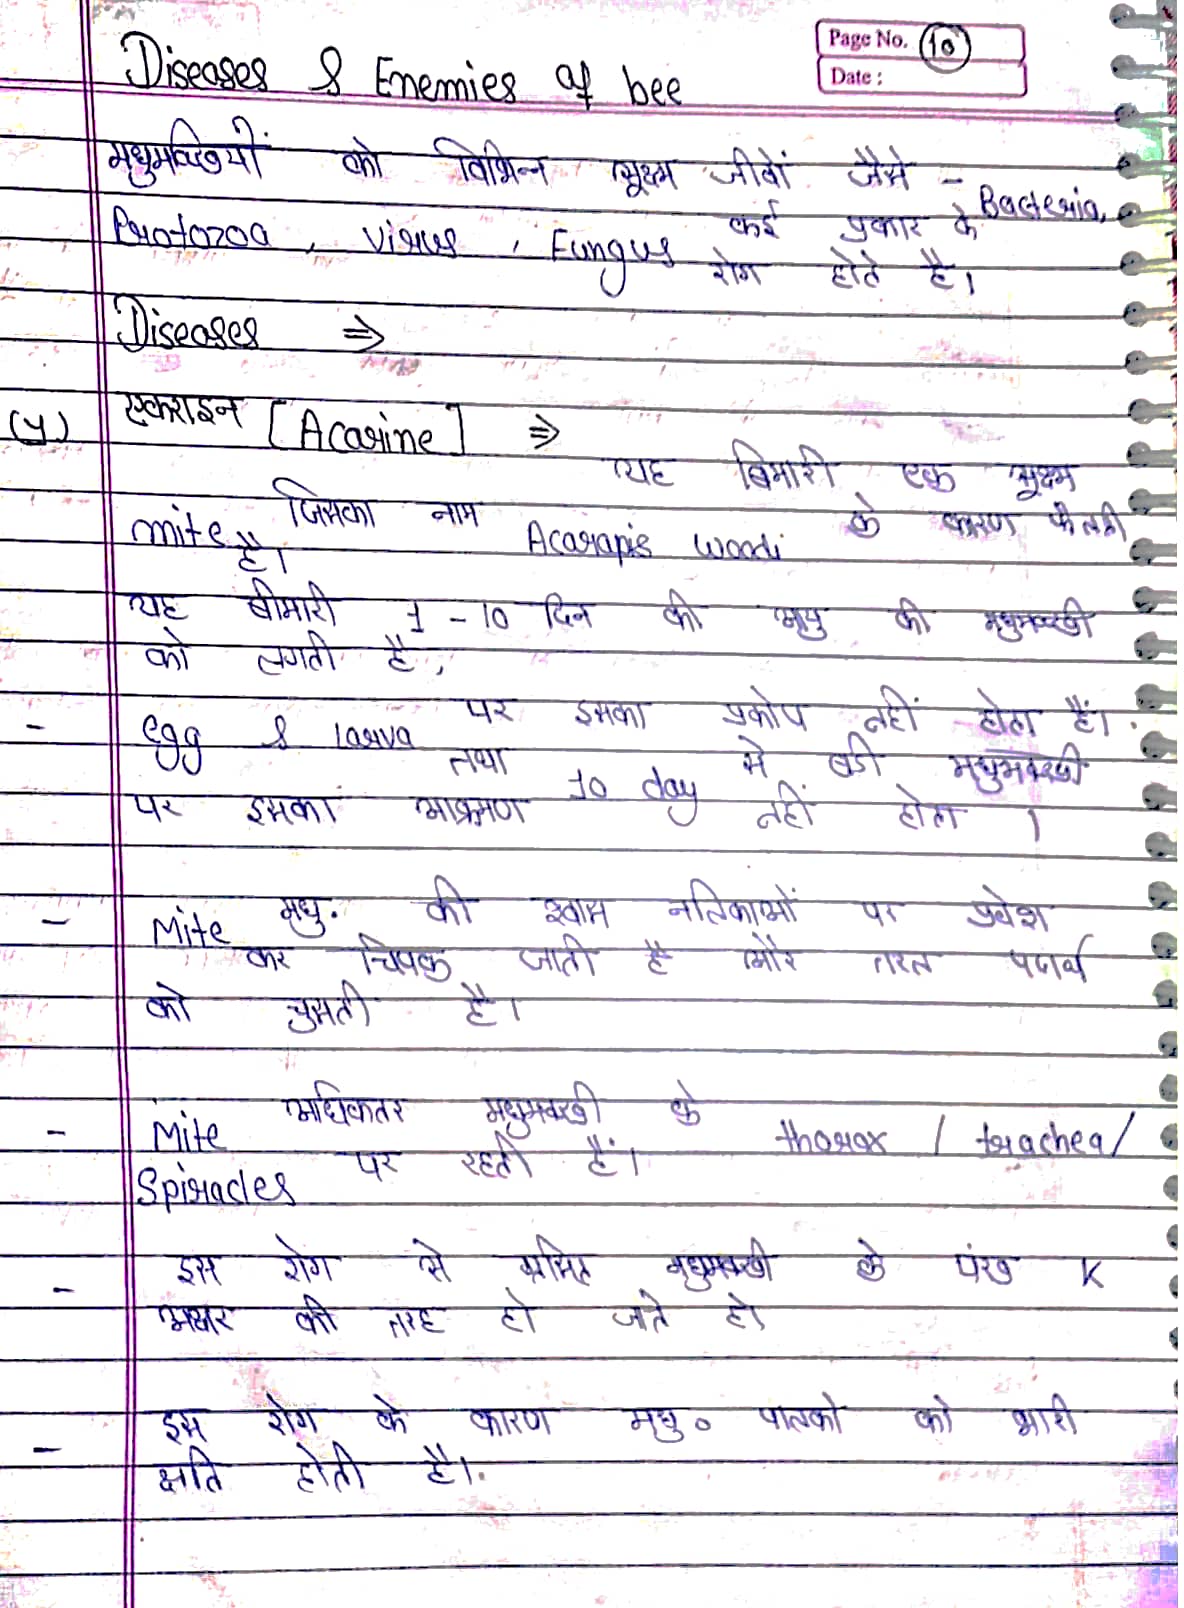 Page No. 10
Date :
Diseases & Enemies of bee
मधुमक्खियों को विभिन्न सूक्ष्म जीवों जैसे - Bacteria,
Protozoa, virus, Fungus कई प्रकार के
रोग होते है।
Diseases ⇒
एकराइन [Acarine] ⇒
यह बिमारी एक सूक्ष्म
mite जिसका नाम Acarapis woodi के कारण फैलती
है।
यह बीमारी 1-10 दिन की आयु की मधुमक्खी
को लगती है,
- egg & larva पर इसका प्रकोप नहीं होता हैं।
तथा 10 day से बडी मधुमक्खी
पर इसका आक्रमण नहीं होता।
- Mite मधु. की श्वास नलिकाओं पर प्रवेश
कर चिपक जाती है और तरल पदार्थ
को चुसती है।
- Mite अधिकतर मधुमक्खी के thorax / trachea /
Spiracles पर रहती हैं।
- इस रोग से ग्रसित मधुमक्खी के पंख K
अक्षर की तरह हो जाते हो
- इस रोग के कारण मधु० पालको को भारी
क्षति होती है।